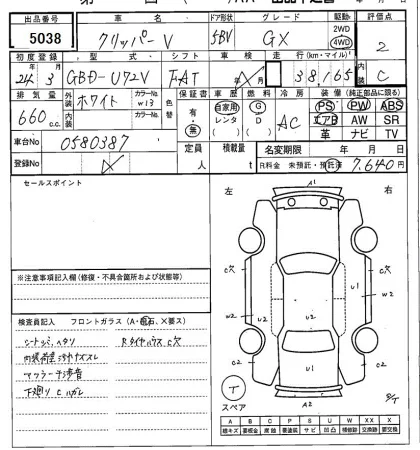 出品番号 車名 ドア形状 グレード 駆動 評価点
5038 クリッパーV 5BV GX 2WD 4WD 2
初度登録 型式 シフト 車検 走行(km・マイル) 内装
24. 3月 GBD-U72V FAT 38,165 C
排気量 外装 ホワイト カラーNo. W13 色替 保証書 車歴 燃料 冷房 装備(純正部品に限る)
660c.c. 内装 カラーNo. 有・無 自家用 レンタ ( ) G D ( ) AC PS PW ABS
エアB AW SR
革 ナビ TV
車台No 0580387 定員 人 積載量 t 名変期限 年 月 日
登録No R料金 未預託・預託済 7,640円
セールスポイント
左 右
A1
C欠 C欠
U1
W2 U2 U2 U1 W2
C2 U1 C2
A2
※注意事項記入欄(修復・不具合箇所および状態等)
検査員記入 フロントガラス(A・飛石、X要ス)
シートシミ、ヘタリ Rタイヤハウスc穴
内張荷室汚れナイスレ
マフラー干渉音
下廻りCハガレ
T
スペア
A B C P S U W X XX
線キズ 要板金 腐蝕 要塗装 サビ 凹凸 補修跡 交換跡 要交換